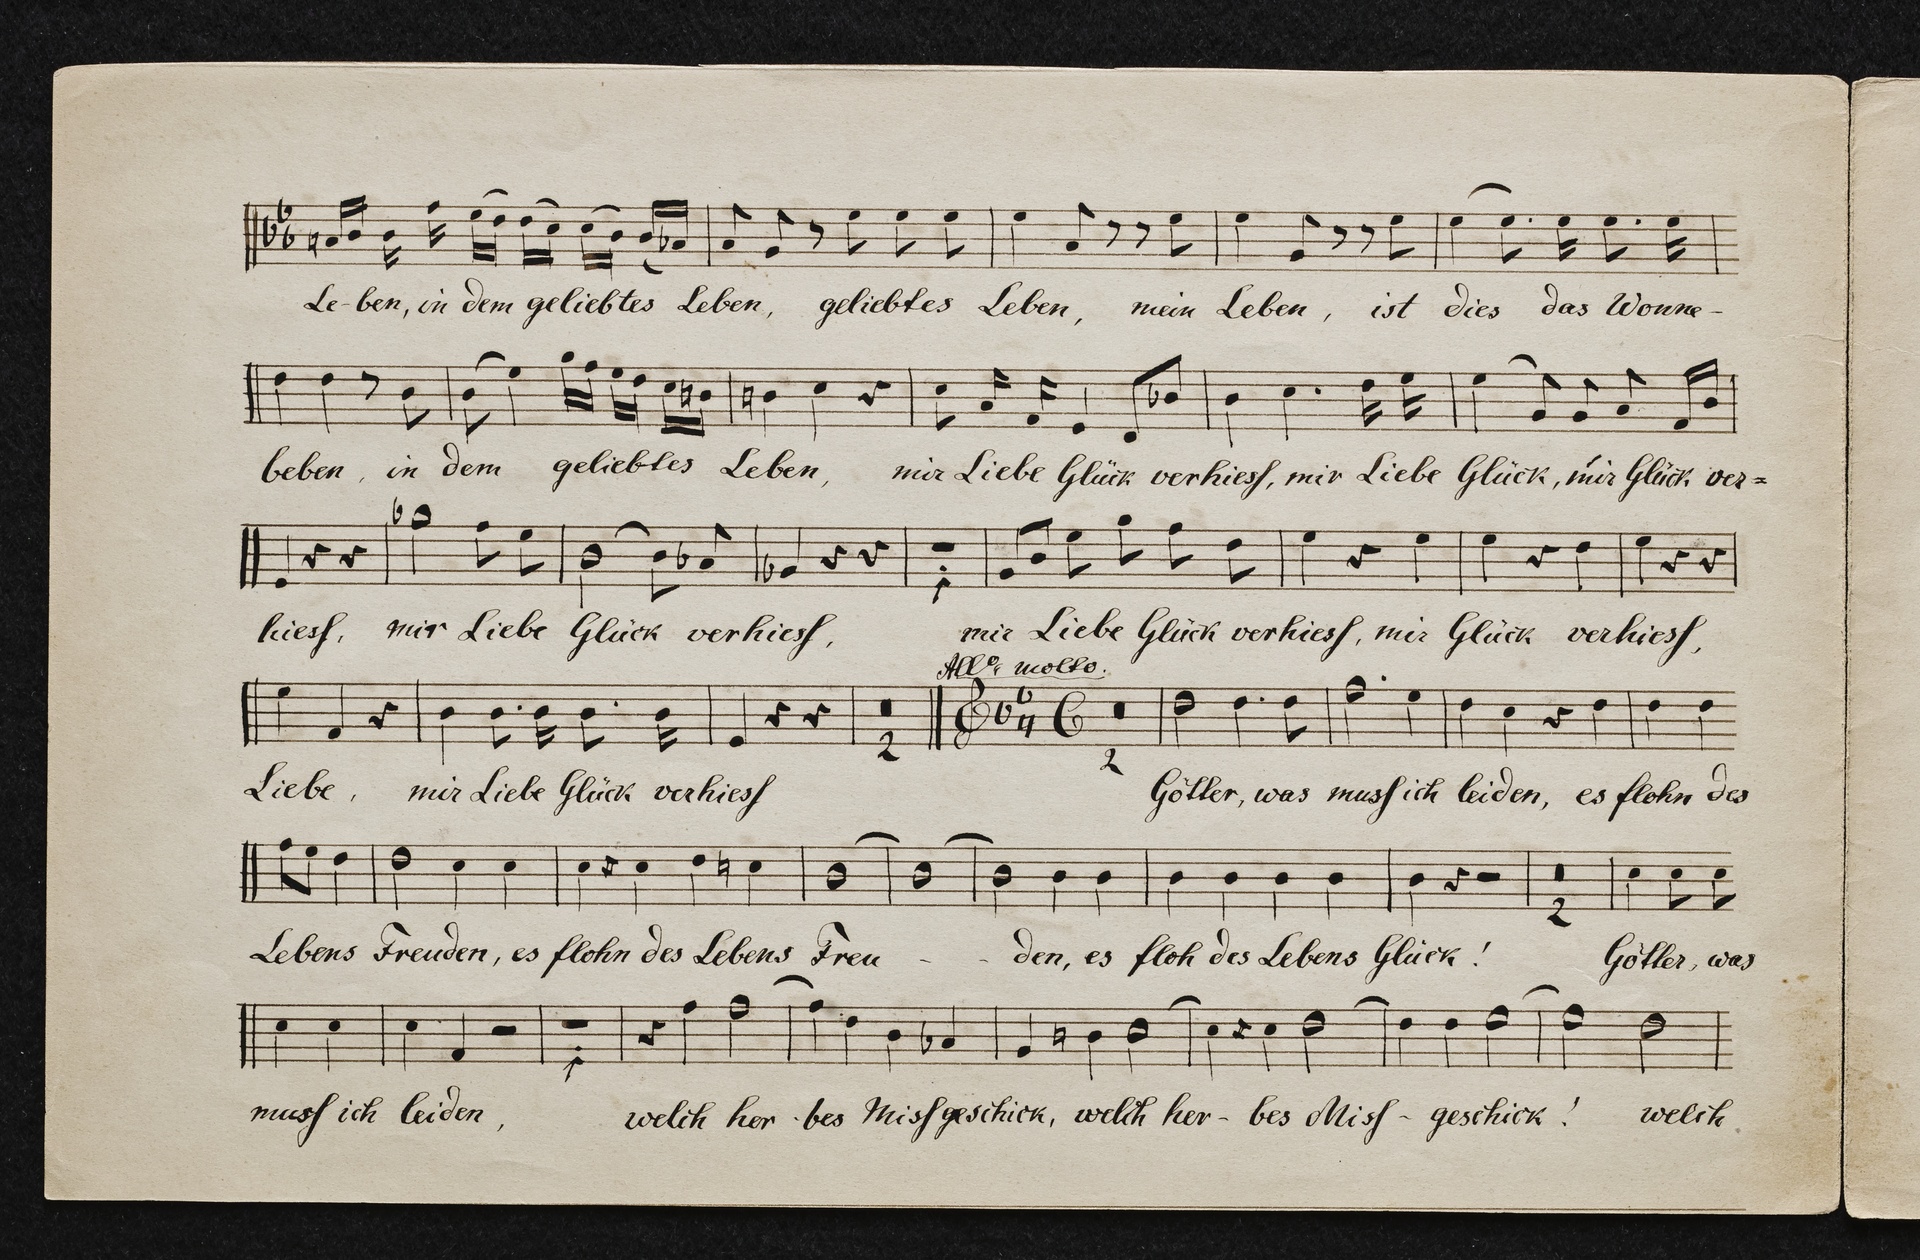 Le-ben, in dem geliebtes Leben, geliebtes Leben, mein Leben, ist dies das Wonne-
beben, in dem geliebtes Leben, mir Liebe Glück verhiess, mir Liebe Glück, mir Glück ver=
hiess, mir Liebe Glück verhiess, mir Liebe Glück verhiess, mir Glück verhiess,
All.o molto.
2 2
Liebe, mir Liebe Glück verhiess Götter, was muss ich leiden, es flohn des
2
Lebens Freuden, es flohn des Lebens Freu - - den, es floh des Lebens Glück! Götter, was
muss ich leiden, welch her-bes Missgeschick, welch her-bes Miss-geschick! welch